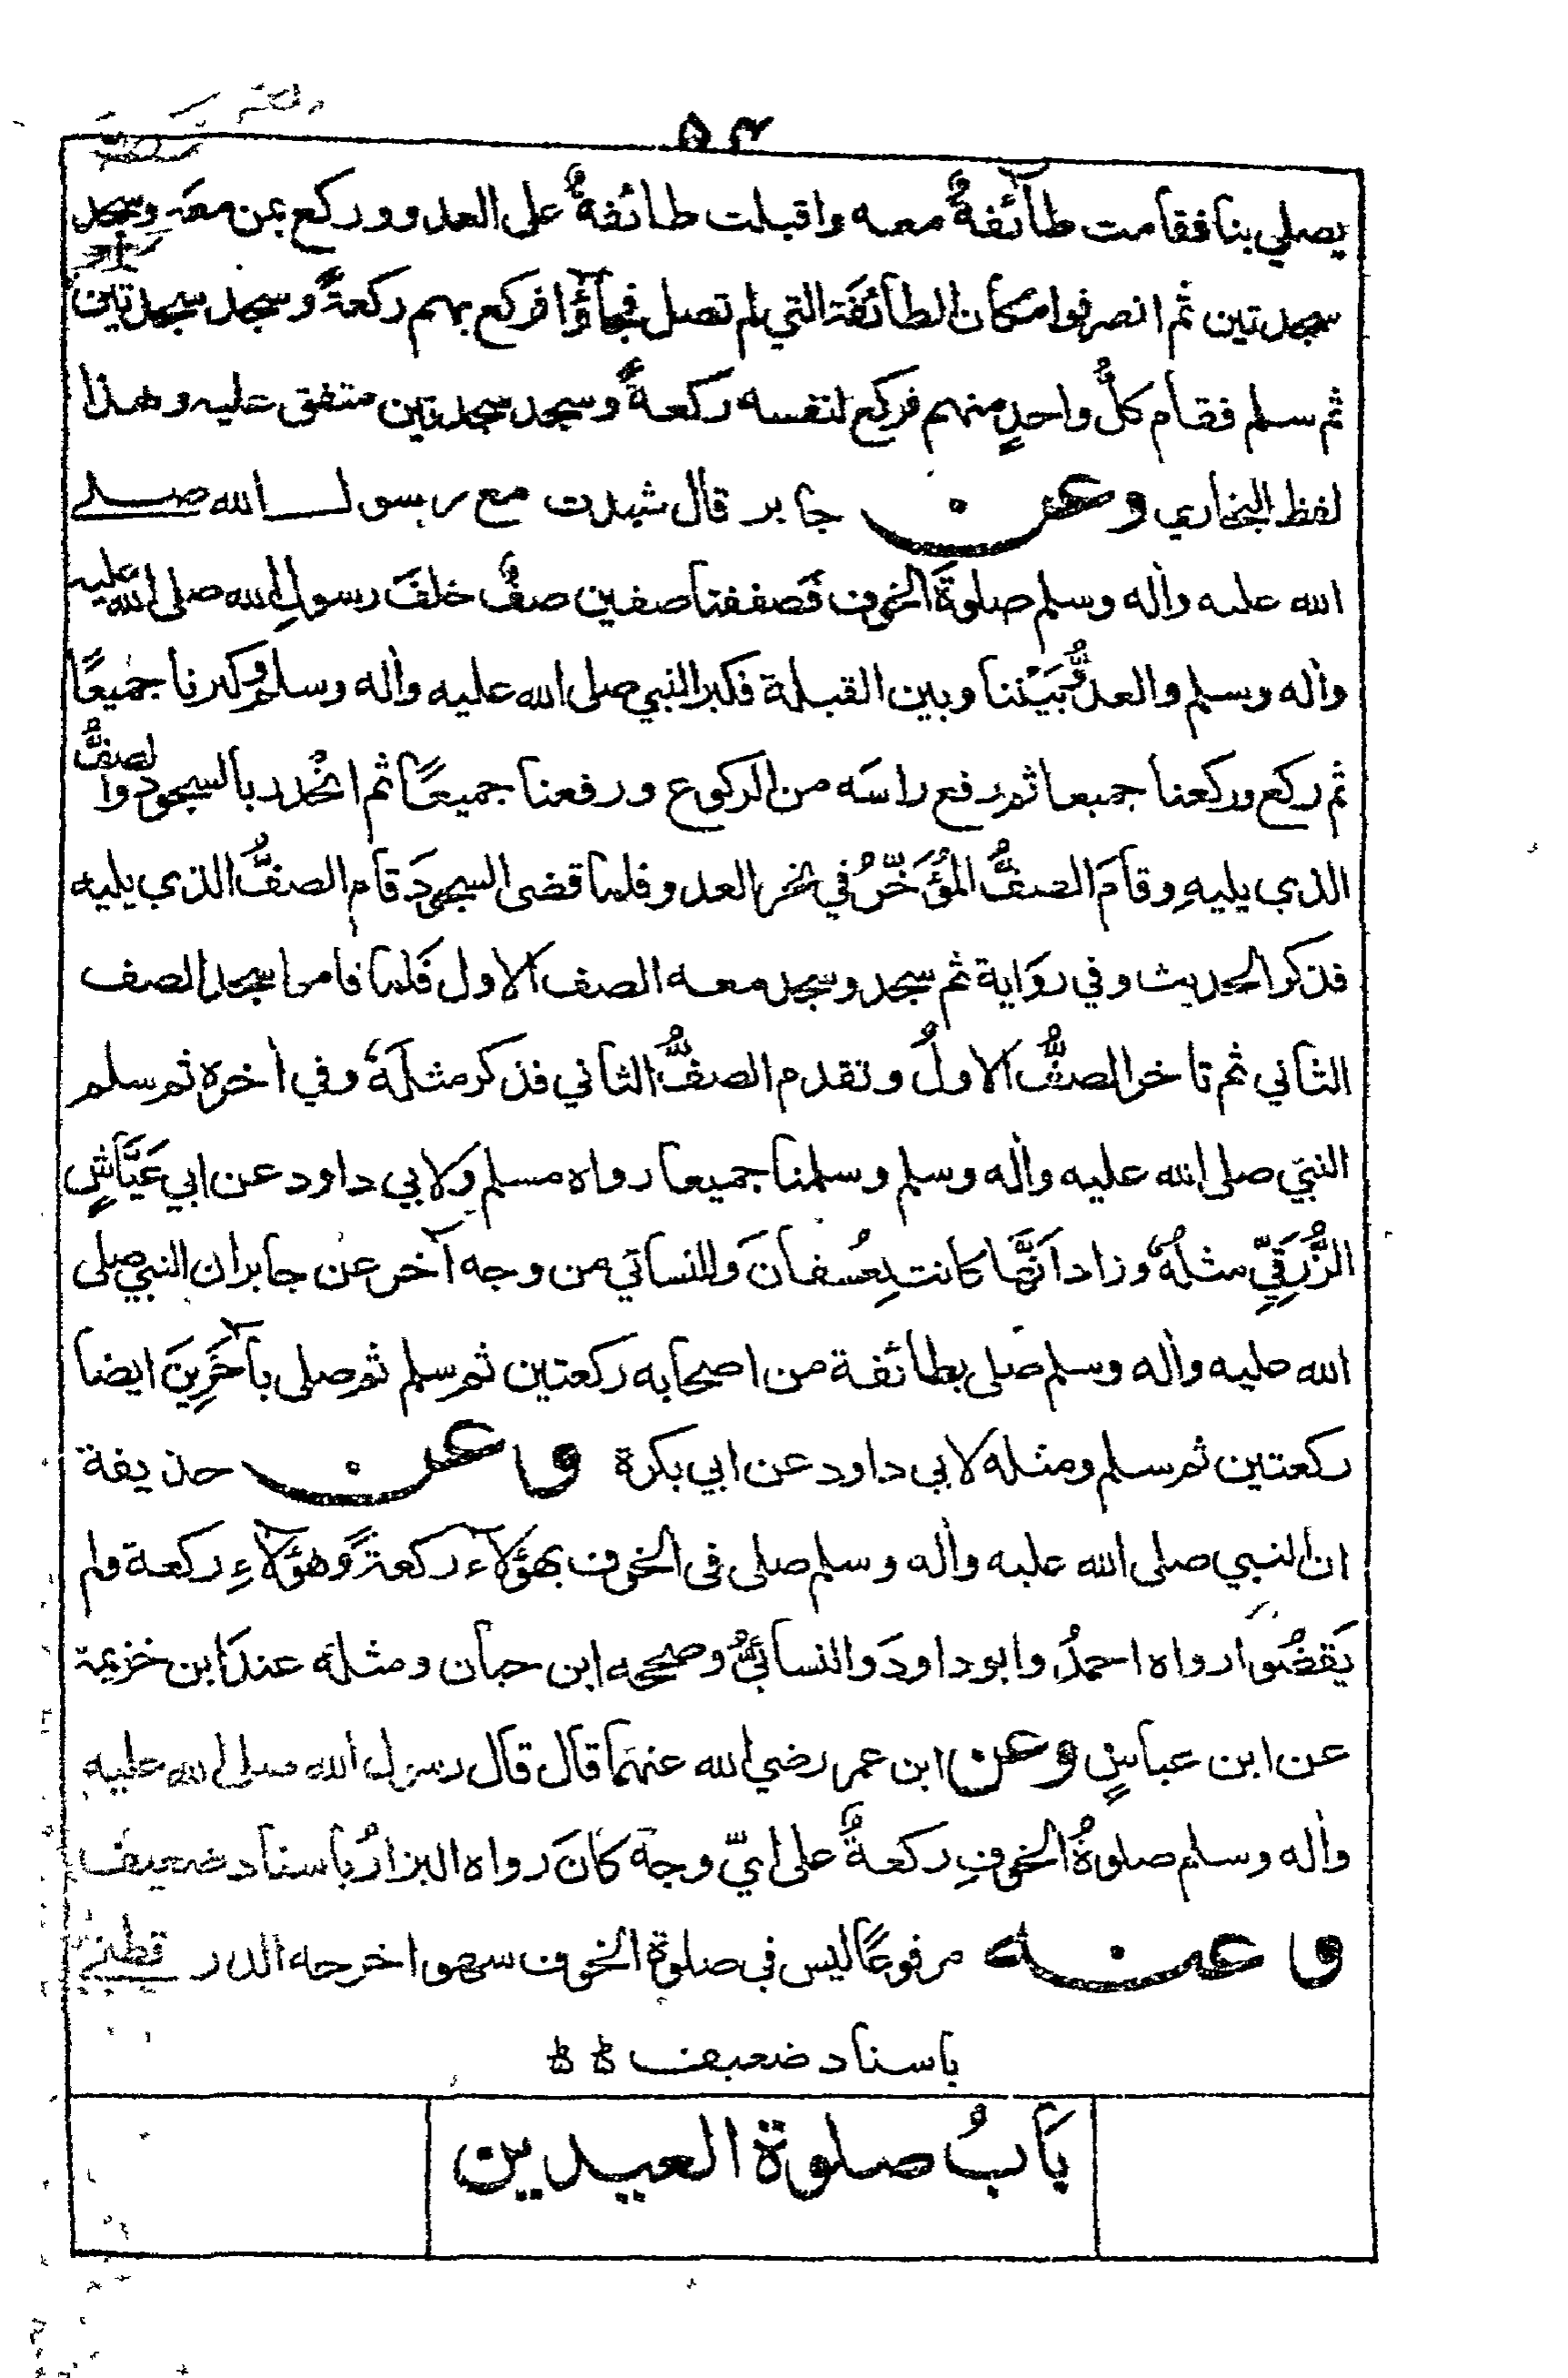 ٥٤
يصلي بنا فقامت طآئفةٌ معه واقبلت طائفةٌ على العدو وركع بمن معه وسجد
سجدتين ثم انصرفوا مكان الطائفَة التي لم تصل فجآؤا فركع بهم ركعةً وسجد سجدتين
ثم سلم فقام كلُّ واحدٍ منهم فركع لنفسه ركعةً وسجد سجدتين متفق عليه وهذا
لفظ البخاري وعن جابر قال شهدت مع رسول الله صلے
الله عليه واٰله وسلم صلوةَ الخوف فَصففنا صفين صفٌّ خلفَ رسولِ الله صلى الله عليه
واٰله وسلم والعدوُّ بَيْننا وبين القبلة فكبر النبي صلى الله عليه واٰله وسلم وكبرنا جميعًا
ثم ركع وركعنا جميعا ثم رفع راسَه من الركوع ورفعنا جميعًا ثم انْحدر بالسجود والصفُّ
الذي يليهِ وقامَ الصفُّ المُؤَخَّرُ في نحر العدو فلما قضى السجودَ قام الصفُّ الذي يليه
فذكر الحديث وفي روَاية ثم سجد وسجد معه الصف الاول فَلما قاموا سجد الصف
الثاني ثم تاخر الصفُّ الاولُ وتقدم الصفُّ الثاني فذكر مثلَهٗ وفي اٰخره ثم سلم
النبي صلى الله عليه واٰله وسلم وسلمنا جميعا رواه مسلم ولابي داود عن ابي عَيَّاشٍ
الزُّرَقِيّ مثلَهٗ وزاد اَنَّها كانت بِعُسفانَ وللنسائي من وجه آخر عن جابر ان النبي صلى
الله عليه واٰله وسلم صلى بطائفة من اصحابه ركعتين ثم سلم ثم صلى بآخَرِينَ ايضا
ركعتين ثم سلم ومثله لابي داود عن ابي بكرة وعن حذيفة
ان النبي صلى الله عليه واٰله وسلم صلى في الخوف بهؤلآء ركعةً وهؤلآءِ ركعة ولم
يَقضُوا رواه احمدُ وابو داودَ والنسائيُّ وصححه ابن حبان ومثلَه عندَ ابن خزيمة
عن ابن عباسٍ وعن ابن عمر رضي الله عنهما قال قال رسول الله صلى الله عليه
واٰله وسلم صلوةُ الخوفِ ركعةٌ على ايّ وجه كانَ رواه البزارُ باسناد ضعيف
وعنه مرفوعًا ليس في صلوة الخوف سهو اخرجه الدار قطنے
باسناد ضعيف
بَابُ صلوة العيدين